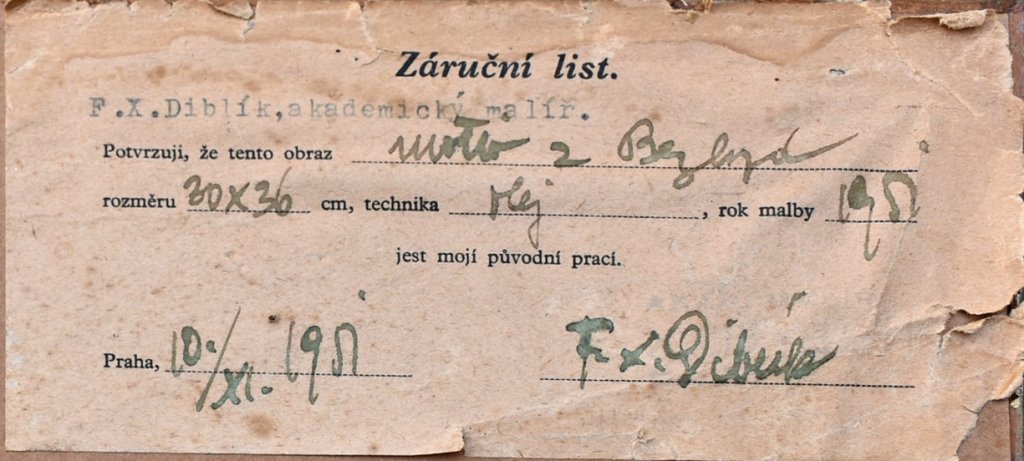 Záruční list.
F.X.Diblík,akademický malíř.
Potvrzuji, že tento obraz motiv z
rozměru 30X36 cm, technika olej, rok malby 1951
jest mojí původní prací.
Praha, 10./XI. 1951 F. X. Diblík